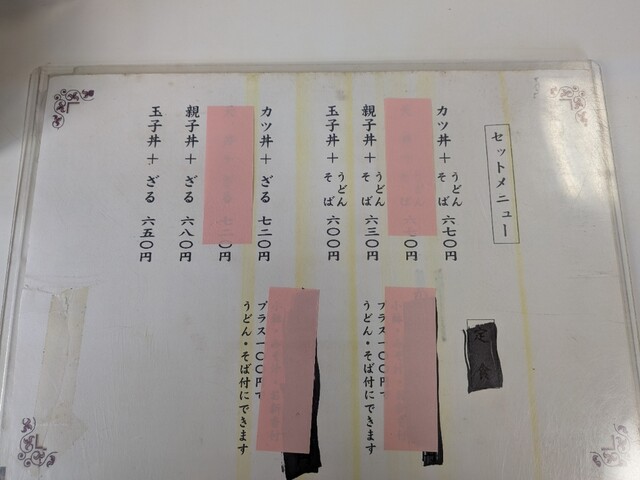 セットメニュー
カツ丼 + うどん そば 六七〇円
親子丼 + うどん そば 六三〇円
玉子丼 + うどん そば 六〇〇円
カツ丼 + ざる 七二〇円
親子丼 + ざる 六八〇円
玉子丼 + ざる 六五〇円
定食
プラス一〇〇円で
うどん・そば付にできます
プラス一〇〇円で
うどん・そば付にできます